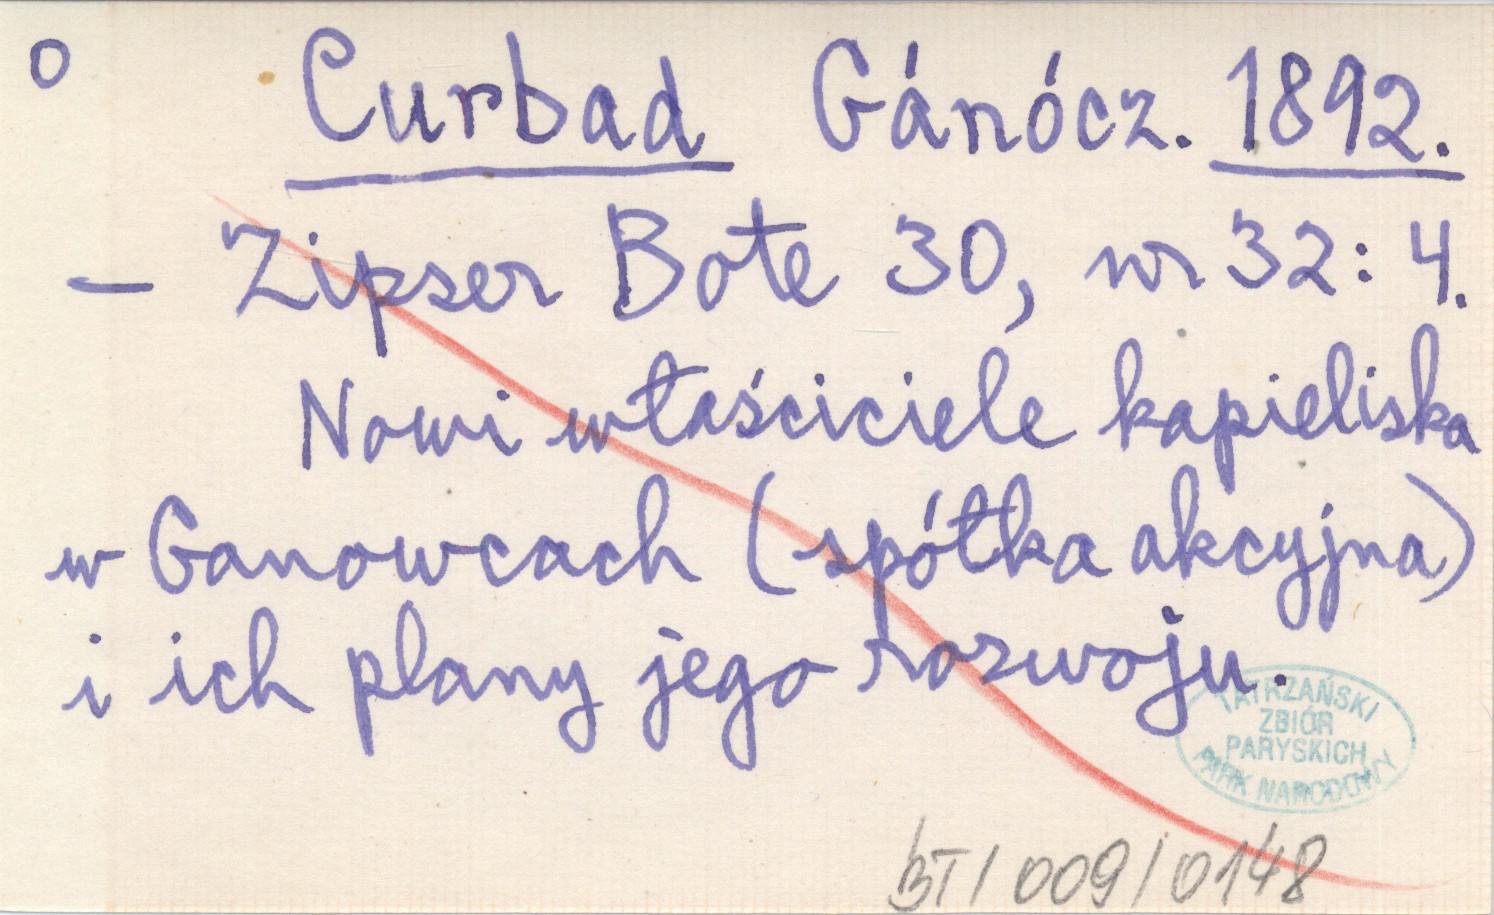 o Curbad Gánócz. 1892.
– Zipser Bote 30, nr 32: 4.
Nowi właściciele kąpieliska
w Ganowcach (spółka akcyjna)
i ich plany jego rozwoju.
TATRZAŃSKI
ZBIÓR
PARYSKICH
PARK NARODOWY
BT/009/0148